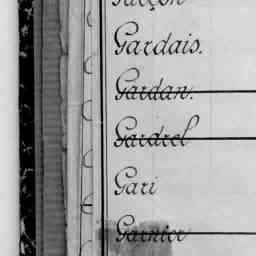 Garçon
Gardais.
Gardan.
Gardrel
Gari
Garnier